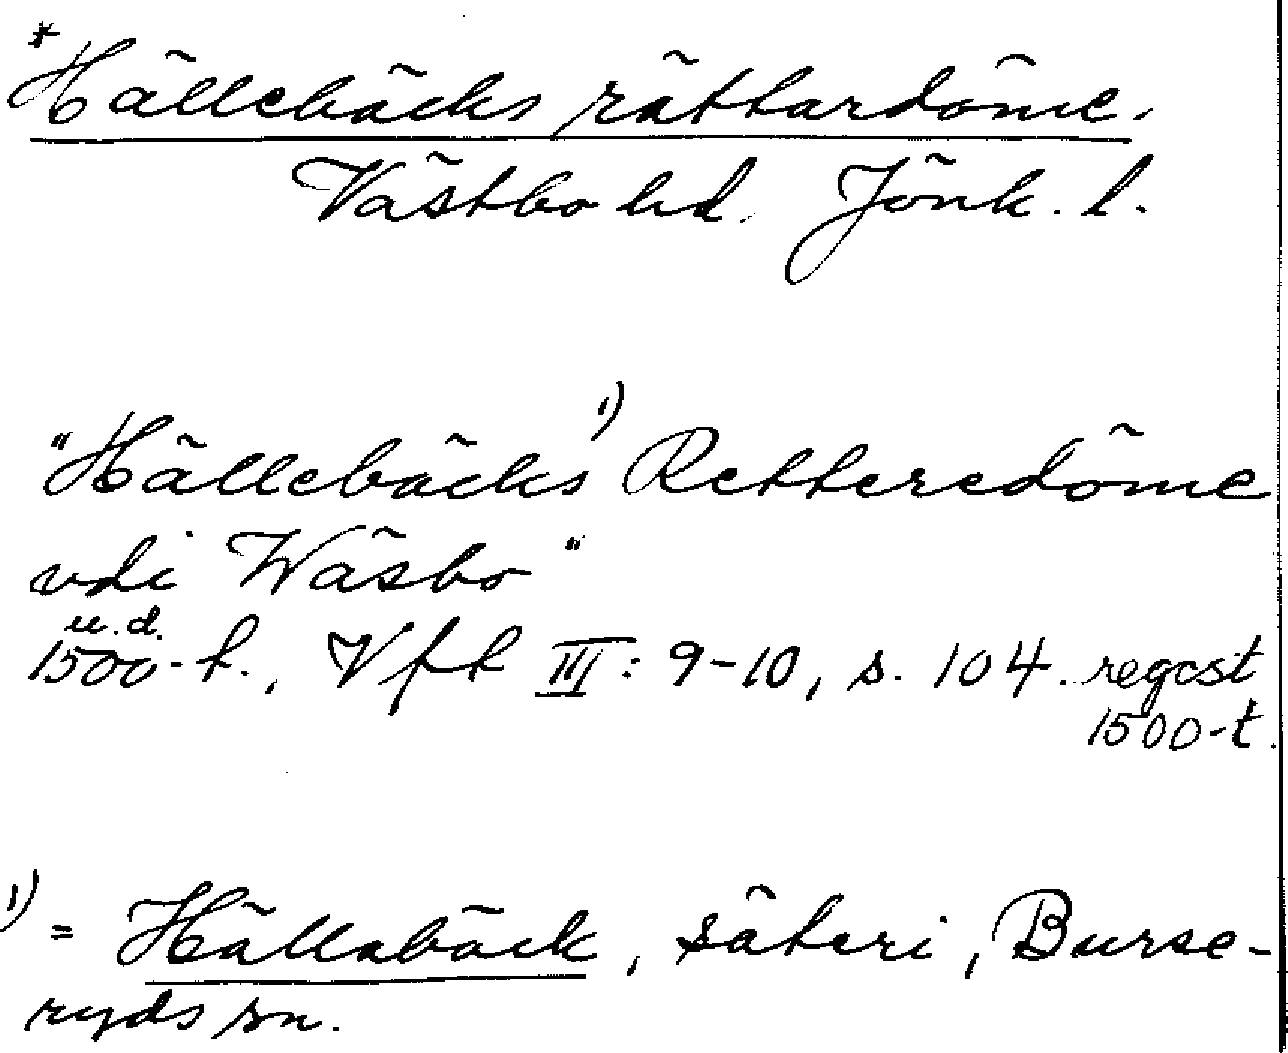 * Hällebäcks rättardöme.
Västbo hd. Jönk. l.
"Hällebäcks ¹) Retteredöme
vdi Wäsbo"
u.d.
1500-t., Vfk III: 9-10, s. 104. regest
1500-t.
¹) = Hällabäck, säteri, Burse-
ryds sn.